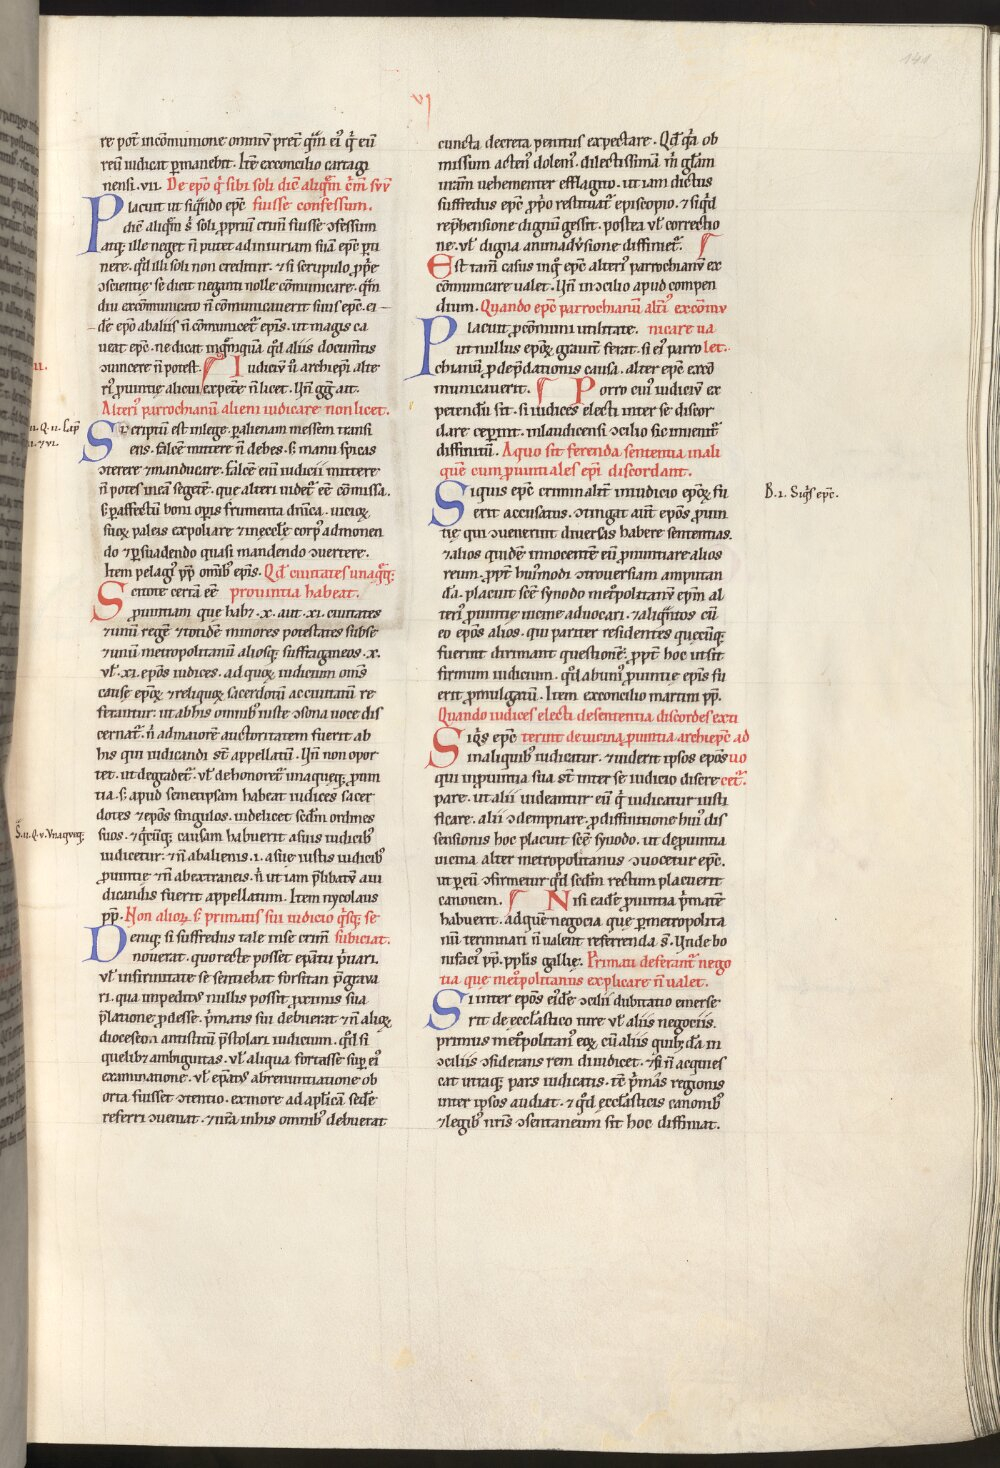 141
vı
re pot̄ incōmunione omniū pret̄ qm̄ eı' qͥ eū
reū iudicat ꝑmanebit. Itē ex concilio cartagi
nensi .vii. De epō qͥ sibi soli dic̄ aliqm̄ cm̄ suū
Placuit ut siqn̄do epc̄ fuisse confessum.
dic̄ aliqm̄ sͥ soli ꝓprıū crım̄ fuisse ɔfessum
atqꝫ ille neget ⁊ n̄ putet ad iniuriam suā epc̄ ꝑti
nere. qd̓ illi soli non creditur. ⁊ si scrupulo ꝓpͥe
ɔscientie se dicit neganti nolle cōmunicare. qm̄
diu excōmunicato n̄ cōmunicauerit suus epc̄. ei
dē epō ab aliis n̄ cōmunicet̄ epı̄s. ut magis ca
ueat epc̄. ne dicat inqm̄quā qd̓ aliis documtis
ɔuincere n̄ potest. Iudiciū ū archiepı̄ alte
rı' ꝓuintię alicui expete n̄ licet. Un̄ gḡ ait.
Alterı' parrochianū alieni iudicare non licet.
Scriptū est in lege. ꝑ alienam messem transi
ens. falcē mittere n̄ debes. sͥ manu spicas
ɔterere ⁊ manducare. falcē enī iudicii mittere
n̄ potes in eā segetē. que alteri uidet̄ eē cōmissa.
sͥ ꝑ affectū boni opıs frumenta dn̄ica. uicioꝝ
suoꝝ paleis expoliare ⁊ in eccl̄ę corp' admonen
do ⁊ ꝑsuadendo quasi mandendo ɔuertere.
Item pelagi' pp̄ omībꝫ epı̄s. Qd̓ ciuitates una qͣqꝫ
Scitote certā eē prouintia habeat.
ꝓuintiam que habꝫ .x. aut .xı. ciuitates
⁊ unū regē ⁊ totidē minores potestates sub se
⁊ unū metropolitanū aliosqꝫ suffraganeos .x.
ul̓ .xı. epōs iudices. ad quoꝝ iudicium om̄s
causę epōꝝ ⁊ reliquoꝝ sacerdotū ac ciuitatū re
ferantur. ut ab his omnibꝫ iuste ɔsona uoce dis
cernat̄. nͥ ad maiorē auctoritatem fuerit ab
his qui iudicandi sт̄ appellatū. Un̄ non opor
tet. ut degradet̄. ul̓ dehonoret̄ unaqueqꝫ ꝓuin
tia. sͥ apud semetipsam habeat iudices sacer
dotes ⁊ epōs singulos. uidelicet sedm̄ ordines
suos. ⁊ qͥcūqꝫ causam habuerit a suis iudicibꝫ
iudicetur. ⁊ n̄ ab alienis .ı. a sue iustis iudicibꝫ
ꝓuintię ⁊ n̄ ab extraneis. nͥ ut iam p̄libatē a iu
dicandis fuerit appellatum. Item nycolaus
pp̄. Non alioꝝ sͥ primatis sui iudicio qͥsqꝫ se
Deniqꝫ si suffredus tale in se crim̄ subiciat.
nouerat. quo recte posset epātu pͥuari.
ul̓ infirmitate se sentiebat forsitan p̄graua
ri. qua impeditꝰ nullis possit ꝓximis sua
p̄latione ꝓdesse. pͥmatis sui debuerat ⁊ n̄ alioꝝ
dioceseon antistitū p̄stolari iudicium. qd̓ si
quelibꝫ ambiguitas. ul̓ aliqua fortasse suꝑ eı'
examinatione. ul̓ epātꝰ abrenuntiatione ob
orta fuisset ɔtentio. ex more ad aplı̄cā sedē
referri ɔueniat. ⁊ nr̄a in his omnibꝫ debuerat
cuncta decreta penitus expectare. Qd̓ qͥa ob
missum actenꝰ dolemꝰ. dilectissimā m̄ glām
uram̄ uehementer efflagito. ut iam dictus
suffredus epc̄ ꝓpͥo restituat̄ episcopio. ⁊ siqͥd
rep̄hensione dignū gessit. postea ul̓ correctio
ne. ul̓ digna animadūsione diffiniet̄.
Est tam̄ casus in qͦ epc̄ alterı' parrochianū ex
cōmunicare ualet. Un̄ in ɔcilio apud compen
dium. Quando epc̄ parrochianū altı' excōmu
Placuit ꝓ cōmuni utilitate. nicare ua
ut nullus epōꝝ grauit̄ ferat. si eı' parro let.
chianū ꝓ dep̄dationis causa. alter epc̄ excō
municauerit. Porro cui' iudiciū ex
petendū sit. si iudices electi inter se discor
dare ceperint. in laudicensi ɔcilio sic inuenit̄
diffinitū. A quo sit ferenda sententia in ali
quē cum ꝓuintiales epı̄ discordant.
Siquis epc̄ criminalit̄ in iudicio epōꝝ fu
erit accusatus. ɔtingat aut̄ epōs ꝓuin
tię qui ɔuenerint diuersas habere sententias.
⁊ alios quidē innocentē eū ꝓnuntiare alios
reum. ꝓpt̄ hui'modi ɔtrouersiam amputan
dā. placuit scē synodo met̄politanū epm̄ al
terı' ꝓuintię uicinę aduocari. ⁊ aliqn̄tos cū
eo epōs alios. qui pariter residentes quecūqꝫ
fuerint dirimant questionē. ꝓpt̄ hoc ut sit
firmum iudicium. qd̓ ab uni' ꝓuintię epı̄s fu
erit ꝓmulgatū. Item ex concilio martini pp̄.
Quando iudices electi de sententia discordes exti
Siqͥs epc̄ terint de uicina ꝓuintia archiepc̄ ad
in aliquibꝫ iudicatur. ⁊ uiderit ipsos epōs uo
qui in ꝓuintia sua sт̄ inter se iudicio discre cet̄.
pare. ut alii uideantur eū qͥ iudicatur iusti
ficare. alii ɔdempnare. ꝓ diffinitione hui' dis
sensionis hoc placuit scē synodo. ut de ꝓuintia
uicina alter metropolitanus ɔuocetur epc̄.
ut ꝑ eū ɔfirmetur qd̓ sedm̄ rectum placuerit
canonem. Nisi eadē ꝓuintia pͥmatē
habuerit. ad quē negocia que ꝑ metropolita
nū terminari n̄ ualent referenda sͭ. Unde bo
nifaci' pp̄. ep̄is gallię. Primati deferant̄ nego
tia que met̄politanus explicare n̄ ualet.
Si inter epōs eı'dē ɔcilii dubitatio emerse
rit de eccl̄astico iure ul̓ aliis negociis.
primus met̄politanꝰ eoꝝ cū aliis quibꝫdā in
ɔciliis ɔsiderans rem diiudicet. ⁊ si n̄ acquies
cat utraqꝫ pars iudicatis. tc̄ pͥmas regionis
inter ipsos audiat. ⁊ qd̓ eccl̄asticis canonibꝫ
⁊ legibꝫ nr̄is ɔsentaneum sit hoc diffiniat.
B. ı. Siqͥs epc̄.
S. ıı. Q. v. Vnaqueqꝫ.